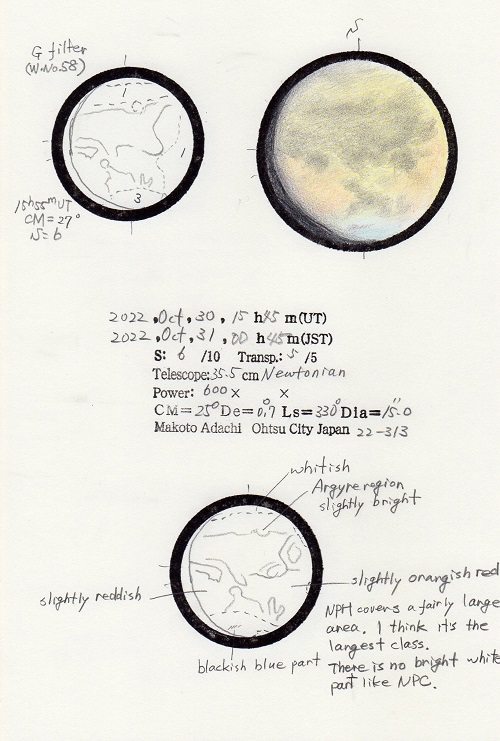 G filter
(W.No.58)
S
1
3
15h55mUT
CM=27°
S=6
2022, Oct, 30, 15 h45 m(UT)
2022, Oct, 31, 00 h45m(JST)
S: 6 /10 Transp.: 5 /5
Telescope:35.5 cm Newtonian
Power: 600× ×
CM=25° De=0.7° Ls=330° Dia=15.0"
Makoto Adachi Ohtsu City Japan 22-313
whitish
Argyre region
slightly bright
slightly reddish
slightly orangish red
NPH covers a fairly large
area. I think it's the
largest class.
There is no bright white
part like NPC.
blackish blue part